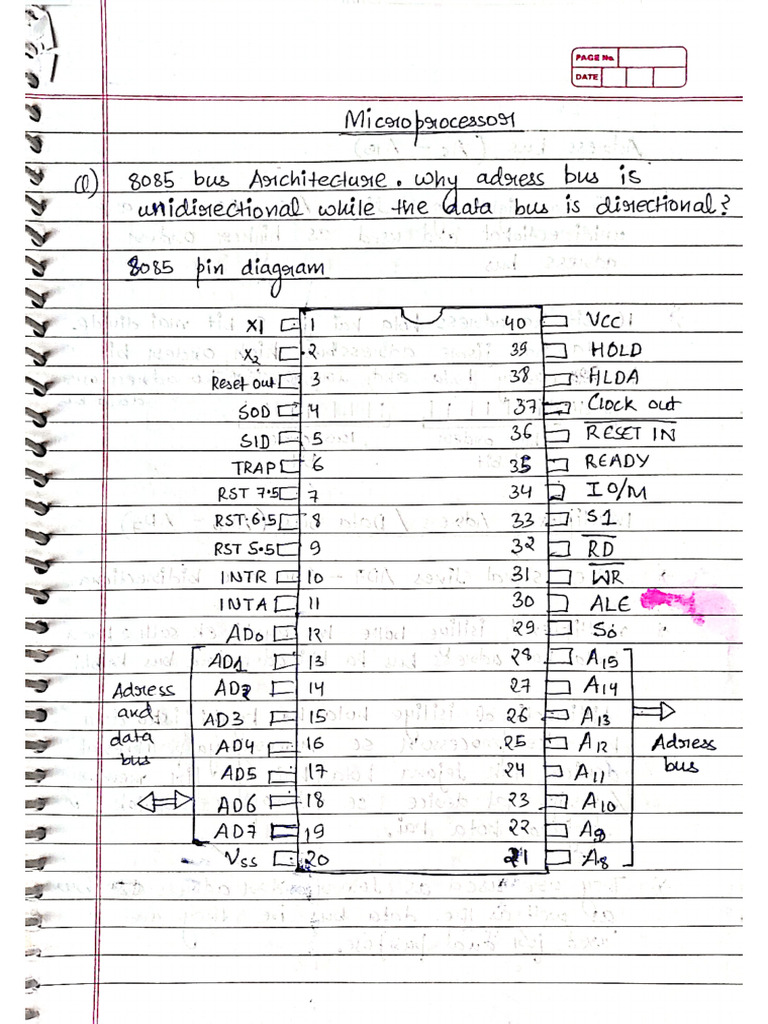 PAGE No.
DATE
Microprocessor
Q) 8085 bus Architecture. Why adress bus is
unidirectional while the data bus is directional?
8085 pin diagram
X1 1 40 VCC
X2 2 39 HOLD
Reset out 3 38 HLDA
SOD 4 37 Clock out
SID 5 36 RESET IN
TRAP 6 35 READY
RST 7.5 7 34 IO/M
RST 6.5 8 33 S1
RST 5.5 9 32 RD
INTR 10 31 WR
INTA 11 30 ALE
AD0 12 29 S0
AD1 13 28 A15
AD2 14 27 A14
AD3 15 26 A13
AD4 16 25 A12
AD5 17 24 A11
AD6 18 23 A10
AD7 19 22 A9
VSS 20 21 A8
Adress
and
data
bus
Adress
bus